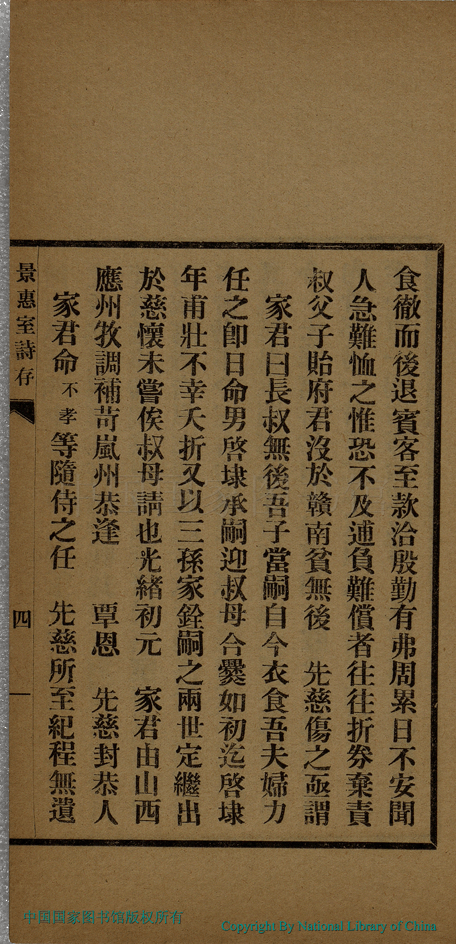 食徹而後退賓客至款洽殷勤有弗周累日不安聞
人急難恤之惟恐不及逋負難償者往往折券棄責
叔父子貽府君沒於贛南貧無後　先慈傷之亟謂
家君曰長叔無後吾子當嗣自今衣食吾夫婦力
任之卽日命男啓埭承嗣迎叔母合爨如初迄啓埭
年甫壯不幸夭折又以三孫家銓嗣之兩世定繼出
於慈懷未嘗俟叔母請也光緖初元　家君由山西
應州牧調補苛嵐州恭逢　覃恩　先慈封恭人
家君命不孝等隨侍之任　先慈所至紀程無遺
景惠室詩存
四
中国国家图书馆版权所有
Copyright By National Library of China